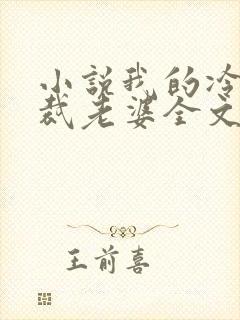 小说我的冷
裁老婆全文
王前喜